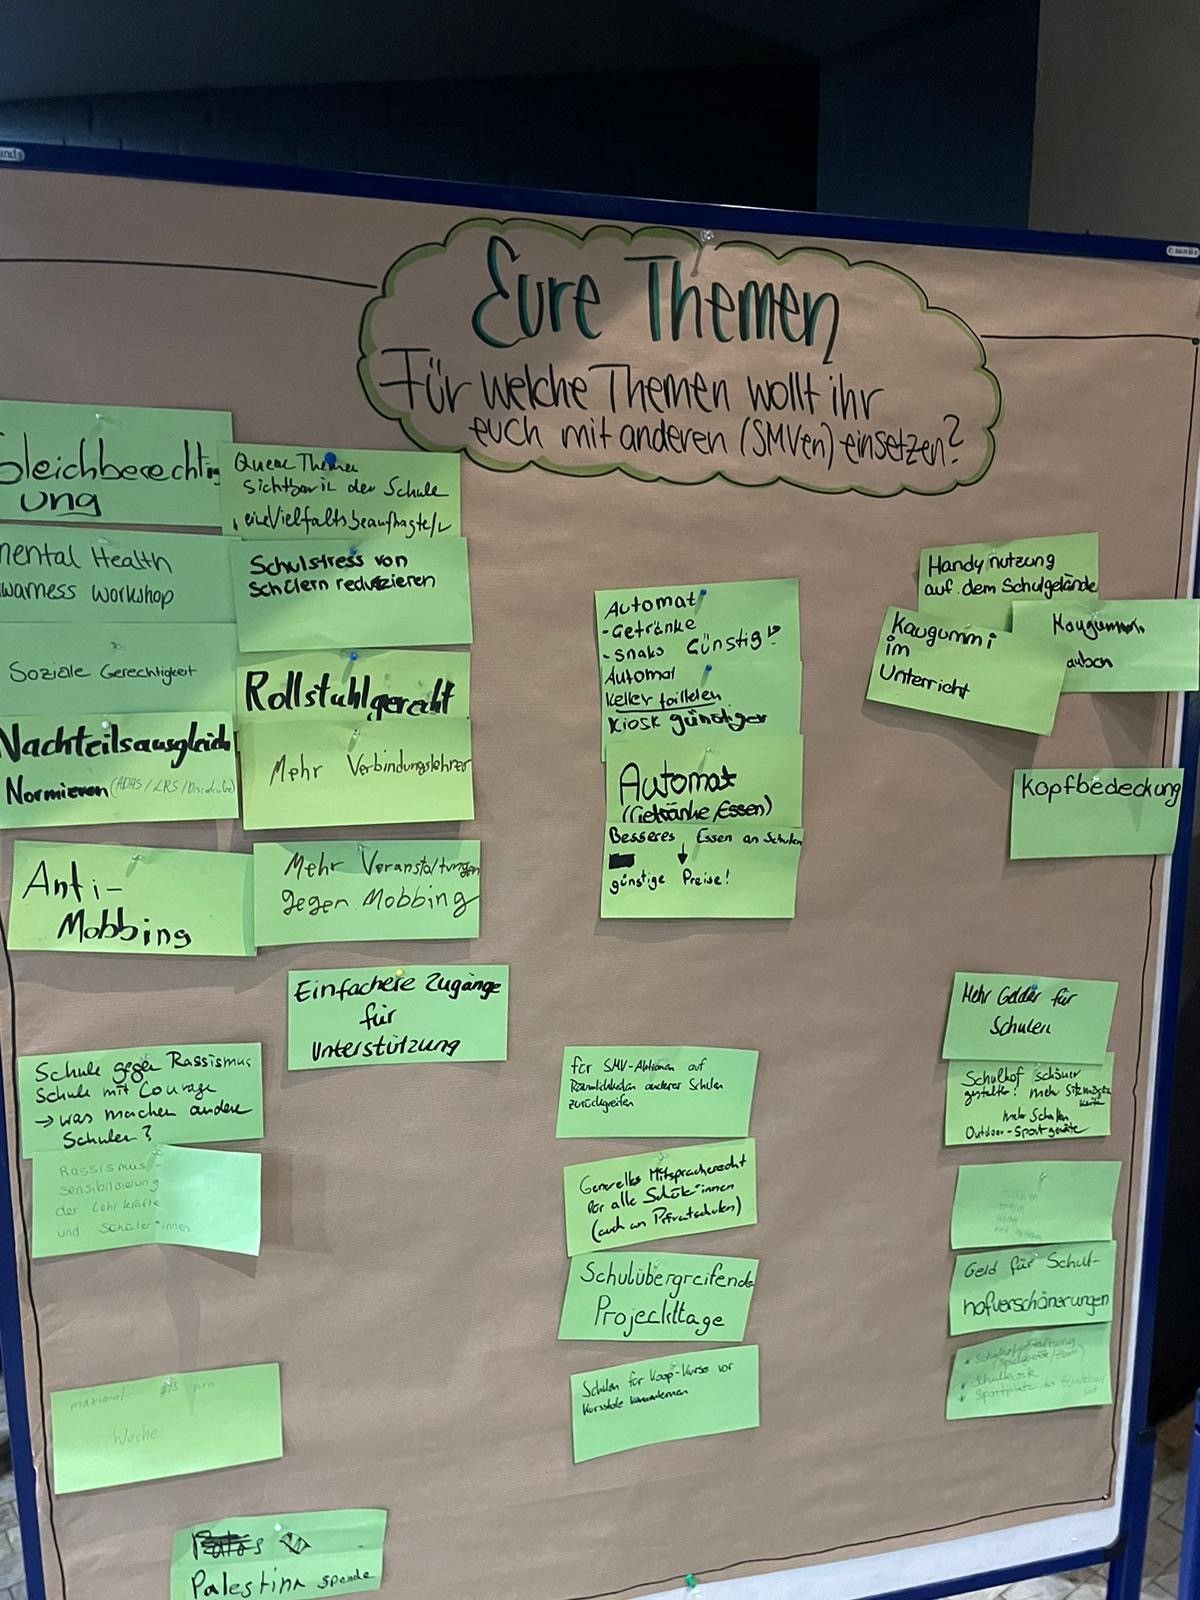 Eure Themen
Für welche Themen wollt ihr
euch mit anderen (SMVen) einsetzen?
Gleichberechtig
ung
Queere Themen
sichtbar in der Schule
eine Vielfaltsbeauftragte/r
mental Health
awarness workshop
Schulstress von
Schülern reduzieren
Soziale Gerechtigkeit
Rollstuhlgerecht
Nachteilsausgleich
Normieren (ADHS / LRS /
Mehr Verbindungslehrer
Anti-
Mobbing
Mehr Veranstaltungen
gegen Mobbing
Einfachere Zugänge
für
Unterstützung
Schule gegen Rassismus
Schule mit Courage
→ was machen andere
Schulen?
Rassismus-
sensibilisierung
der Lehrkräfte
und Schüler*innen
maximal pro
Woche
Palestina spende
Automat
- Getränke
- snaks Günstig!
Automat
Keller toiletten
Kiosk günstiger
Automat
(Getränke/Essen)
Besseres Essen an Schulen
günstige Preise!
für SMV-Aktionen auf
Räumlichkeiten anderer Schulen
zurückgreifen
Generelles Mitspracherecht
für alle Schüler*innen
(auch an Privatschulen)
Schulübergreifende
Projekttage
Schulen für Koop-Kurse vor
Kursstufe
Handy nutzung
auf dem Schulgelände
Kaugummi
im
Unterricht
Kaugummi
Kopfbedeckung
Mehr Gelder für
Schulen
Schulhof schöner
gestalten! mehr
mehr Schatten
Outdoor-Sportgeräte
Geld für Schul-
hofverschönerungen
Schulkiosk
Sportplatz